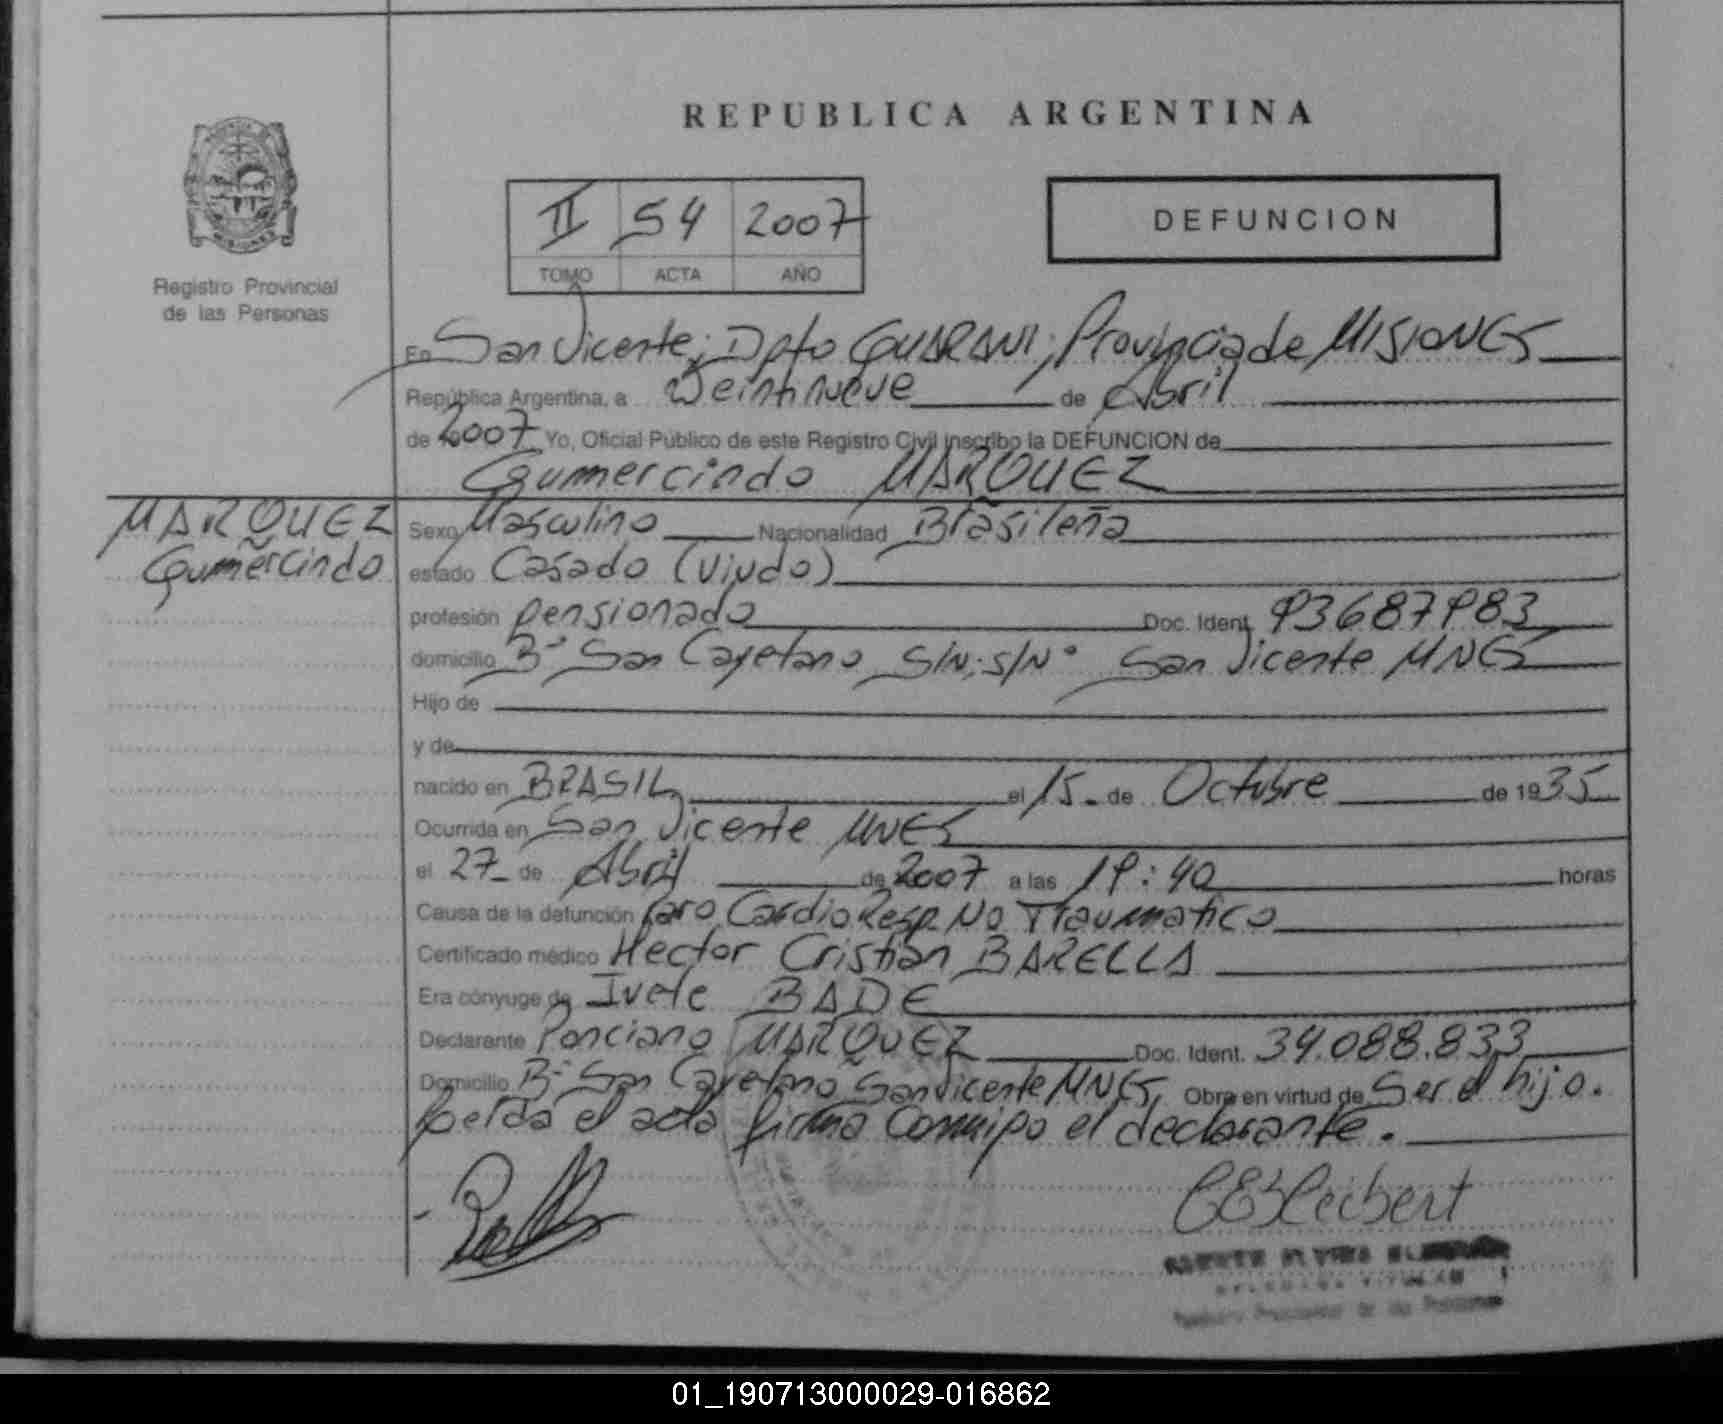 REPUBLICA ARGENTINA
II 54 2007
TOMO ACTA AÑO
DEFUNCION
Registro Provincial
de las Personas
En San Vicente; Dpto GUARANI; Provincia de MISIONES
República Argentina, a Veintinueve de Abril
de 2007 Yo, Oficial Público de este Registro Civil inscribo la DEFUNCION de
Gumercindo MARQUEZ
MARQUEZ
Gumercindo
Sexo Masculino Nacionalidad Brasileña
estado Casado (Viudo)
profesión pensionado Doc. Ident. 93687983
domicilio Bº San Cayetano S/N; S/Nº San Vicente MNES
Hijo de
y de
nacido en BRASIL el 15 de Octubre de 1935
Ocurrida en San Vicente MNES
el 27 de Abril de 2007 a las 19:40 horas
Causa de la defunción Paro Cardio Resp. No Traumatico
Certificado médico Hector Cristian BARELLA
Era cónyuge de Ivete BADE
Declarante Ponciano MARQUEZ Doc. Ident. 34.088.833
Domicilio Bº San Cayetano San Vicente MNES, Obra en virtud de Ser el hijo.
Leida el acta firma conmigo el declarante.
01_190713000029-016862